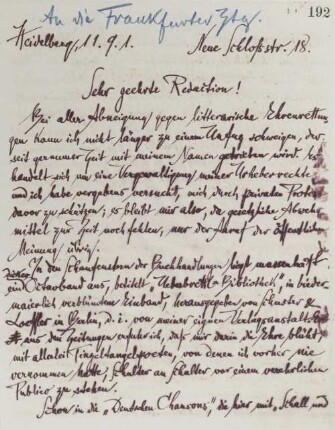 An die Frankfurter Ztg.
192
Heidelberg, 11. 9. 1. Neue Schloßstr. 18.
Sehr geehrte Redaction!
Bei aller Abneigung gegen litterarische Ehrenrettun-
gen kann ich nicht länger zu einem Unfug schweigen, der
seit geraumer Zeit mit meinem Namen getrieben wird. Es
handelt sich um eine Vergewaltigung meiner Urheberrechte
und ich habe vergebens versucht, mich durch privaten Protest
davor zu schützen; es bleibt mir also, da gesetzliche Abwehr-
mittel zur Zeit noch fehlen, nur der Anruf der öffentlichen
Meinung übrig.
In den Schaufenstern der Buchhandlungen liegt massenhaft
ein Octavband aus, betitelt „Ueberbrettl-Bibliothek", in bieder-
maierlich verblümtem Einband, herausgegeben von Schuster &
Loeffler in Berlin, d. i. von meiner eignen Verlagsanstalt.
aus den Zeitungen erfuhr ich, daß mir darin die Ehre blüht,
mit allerlei Tingeltangelpoeten, von denen ich vorher nie
vernommen hatte, Schulter an Schulter vor einem verehrlichen
Publico zu stehen.
Schon in die „Deutschen Chansons", die hier mit „Schall und